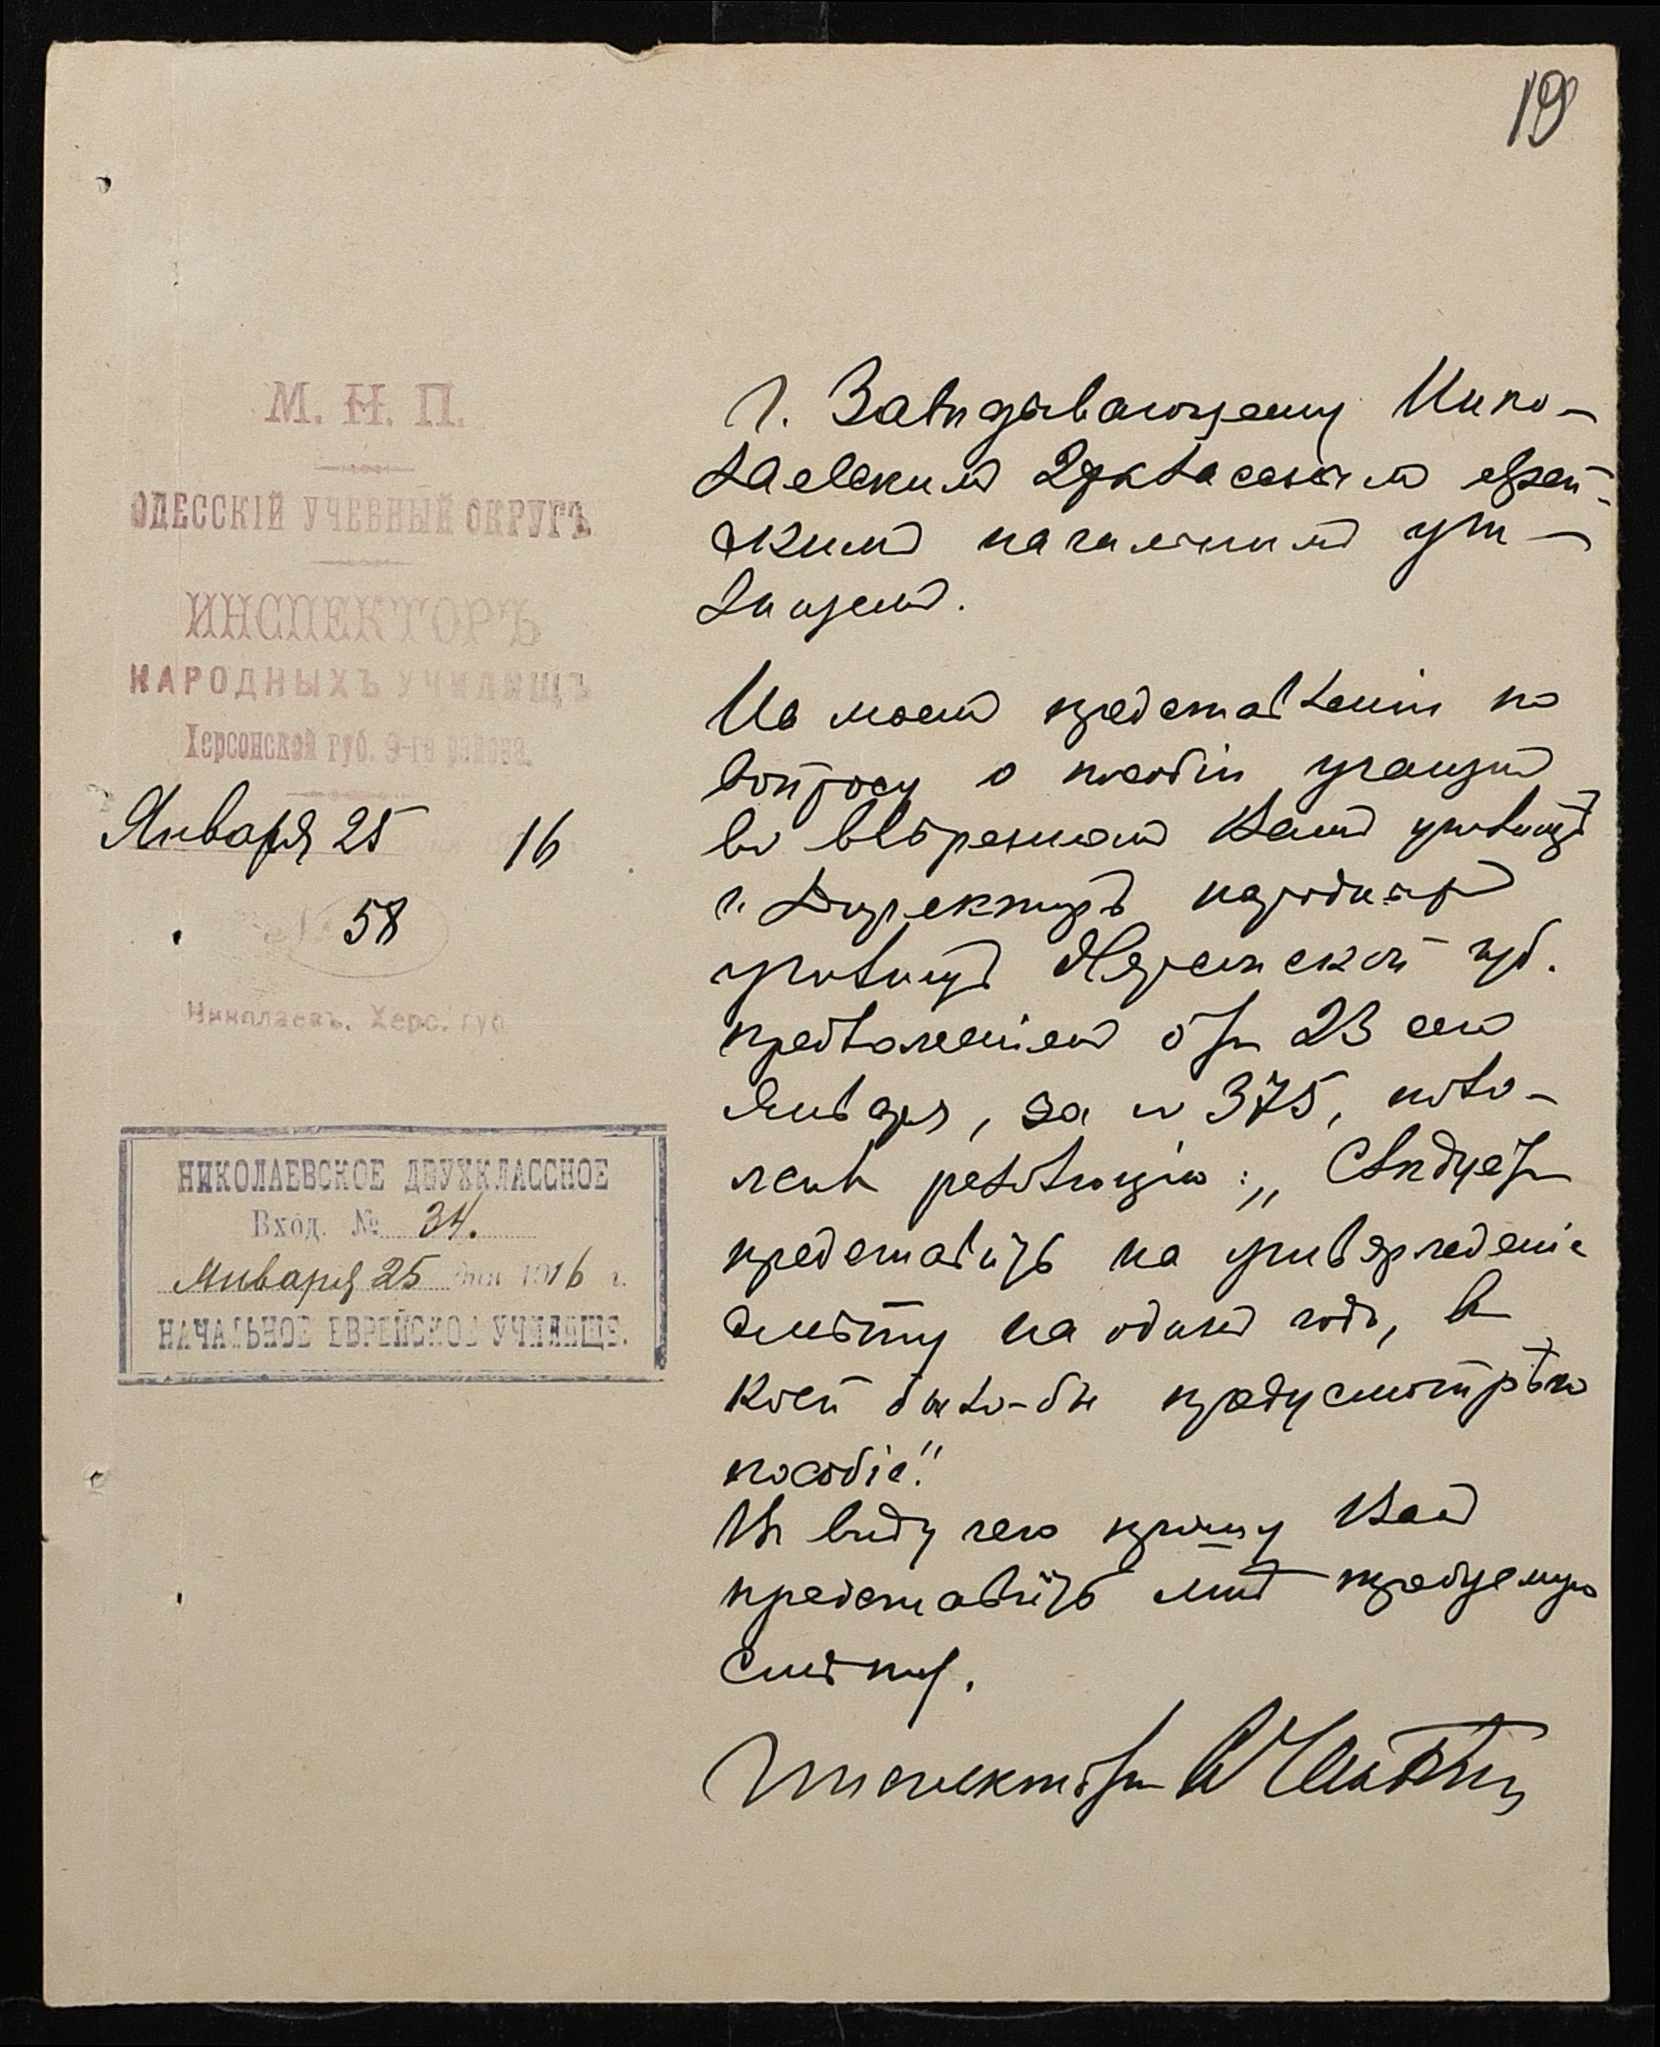 19
М. Н. П.
ОДЕССКІЙ УЧЕБНЫЙ ОКРУГЪ
ИНСПЕКТОРЪ
НАРОДНЫХЪ УЧИЛИЩЪ
Херсонской губ. 3-го района.
Января 25 16
№ 58
Николаевъ, Херс. губ.
НИКОЛАЕВСКОЕ ДВУХКЛАССНОЕ
Вход. № 34.
Января 25 дня 1916 г.
НАЧАЛЬНОЕ ЕВРЕЙСКОЕ УЧИЛИЩЕ.
Г. Завѣдывающему Нико-
лаевскимъ 2хкласснымъ еврей-
скимъ начальнымъ учи-
лищемъ.
На моемъ представленіи по
вопросу о пособіи учащимъ
во ввѣренномъ Вамъ училищѣ
г. Директоръ народныхъ
училищъ Херсонской губ.
предложеніемъ отъ 23 сего
Января, за № 375, поло-
жена резолюція: „Слѣдуетъ
представить на утвержденіе
смѣту на одинъ годъ, въ
коей было-бы предусмотрѣно
пособіе".
Въ виду чего прошу Васъ
представить мнѣ требуемую
смѣту.
Инспекторъ